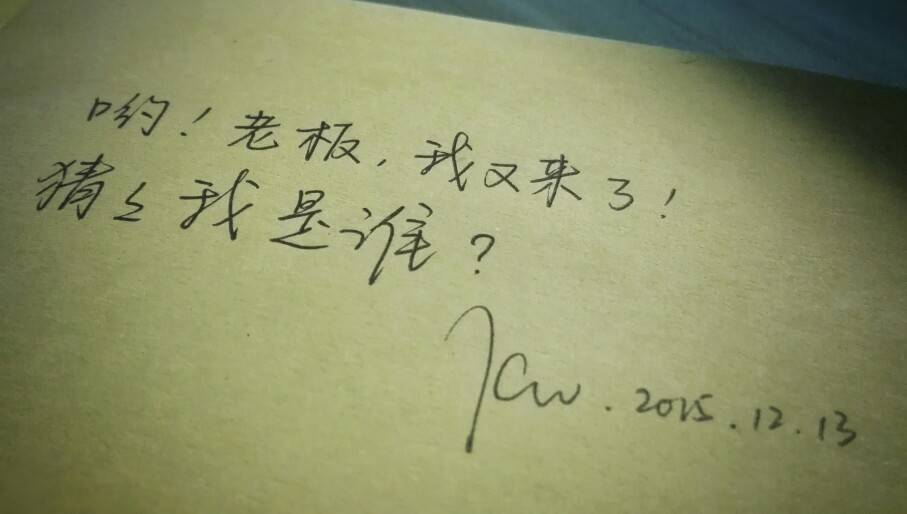 哟！老板，我又来了！
猜々我是谁？
2015.12.13